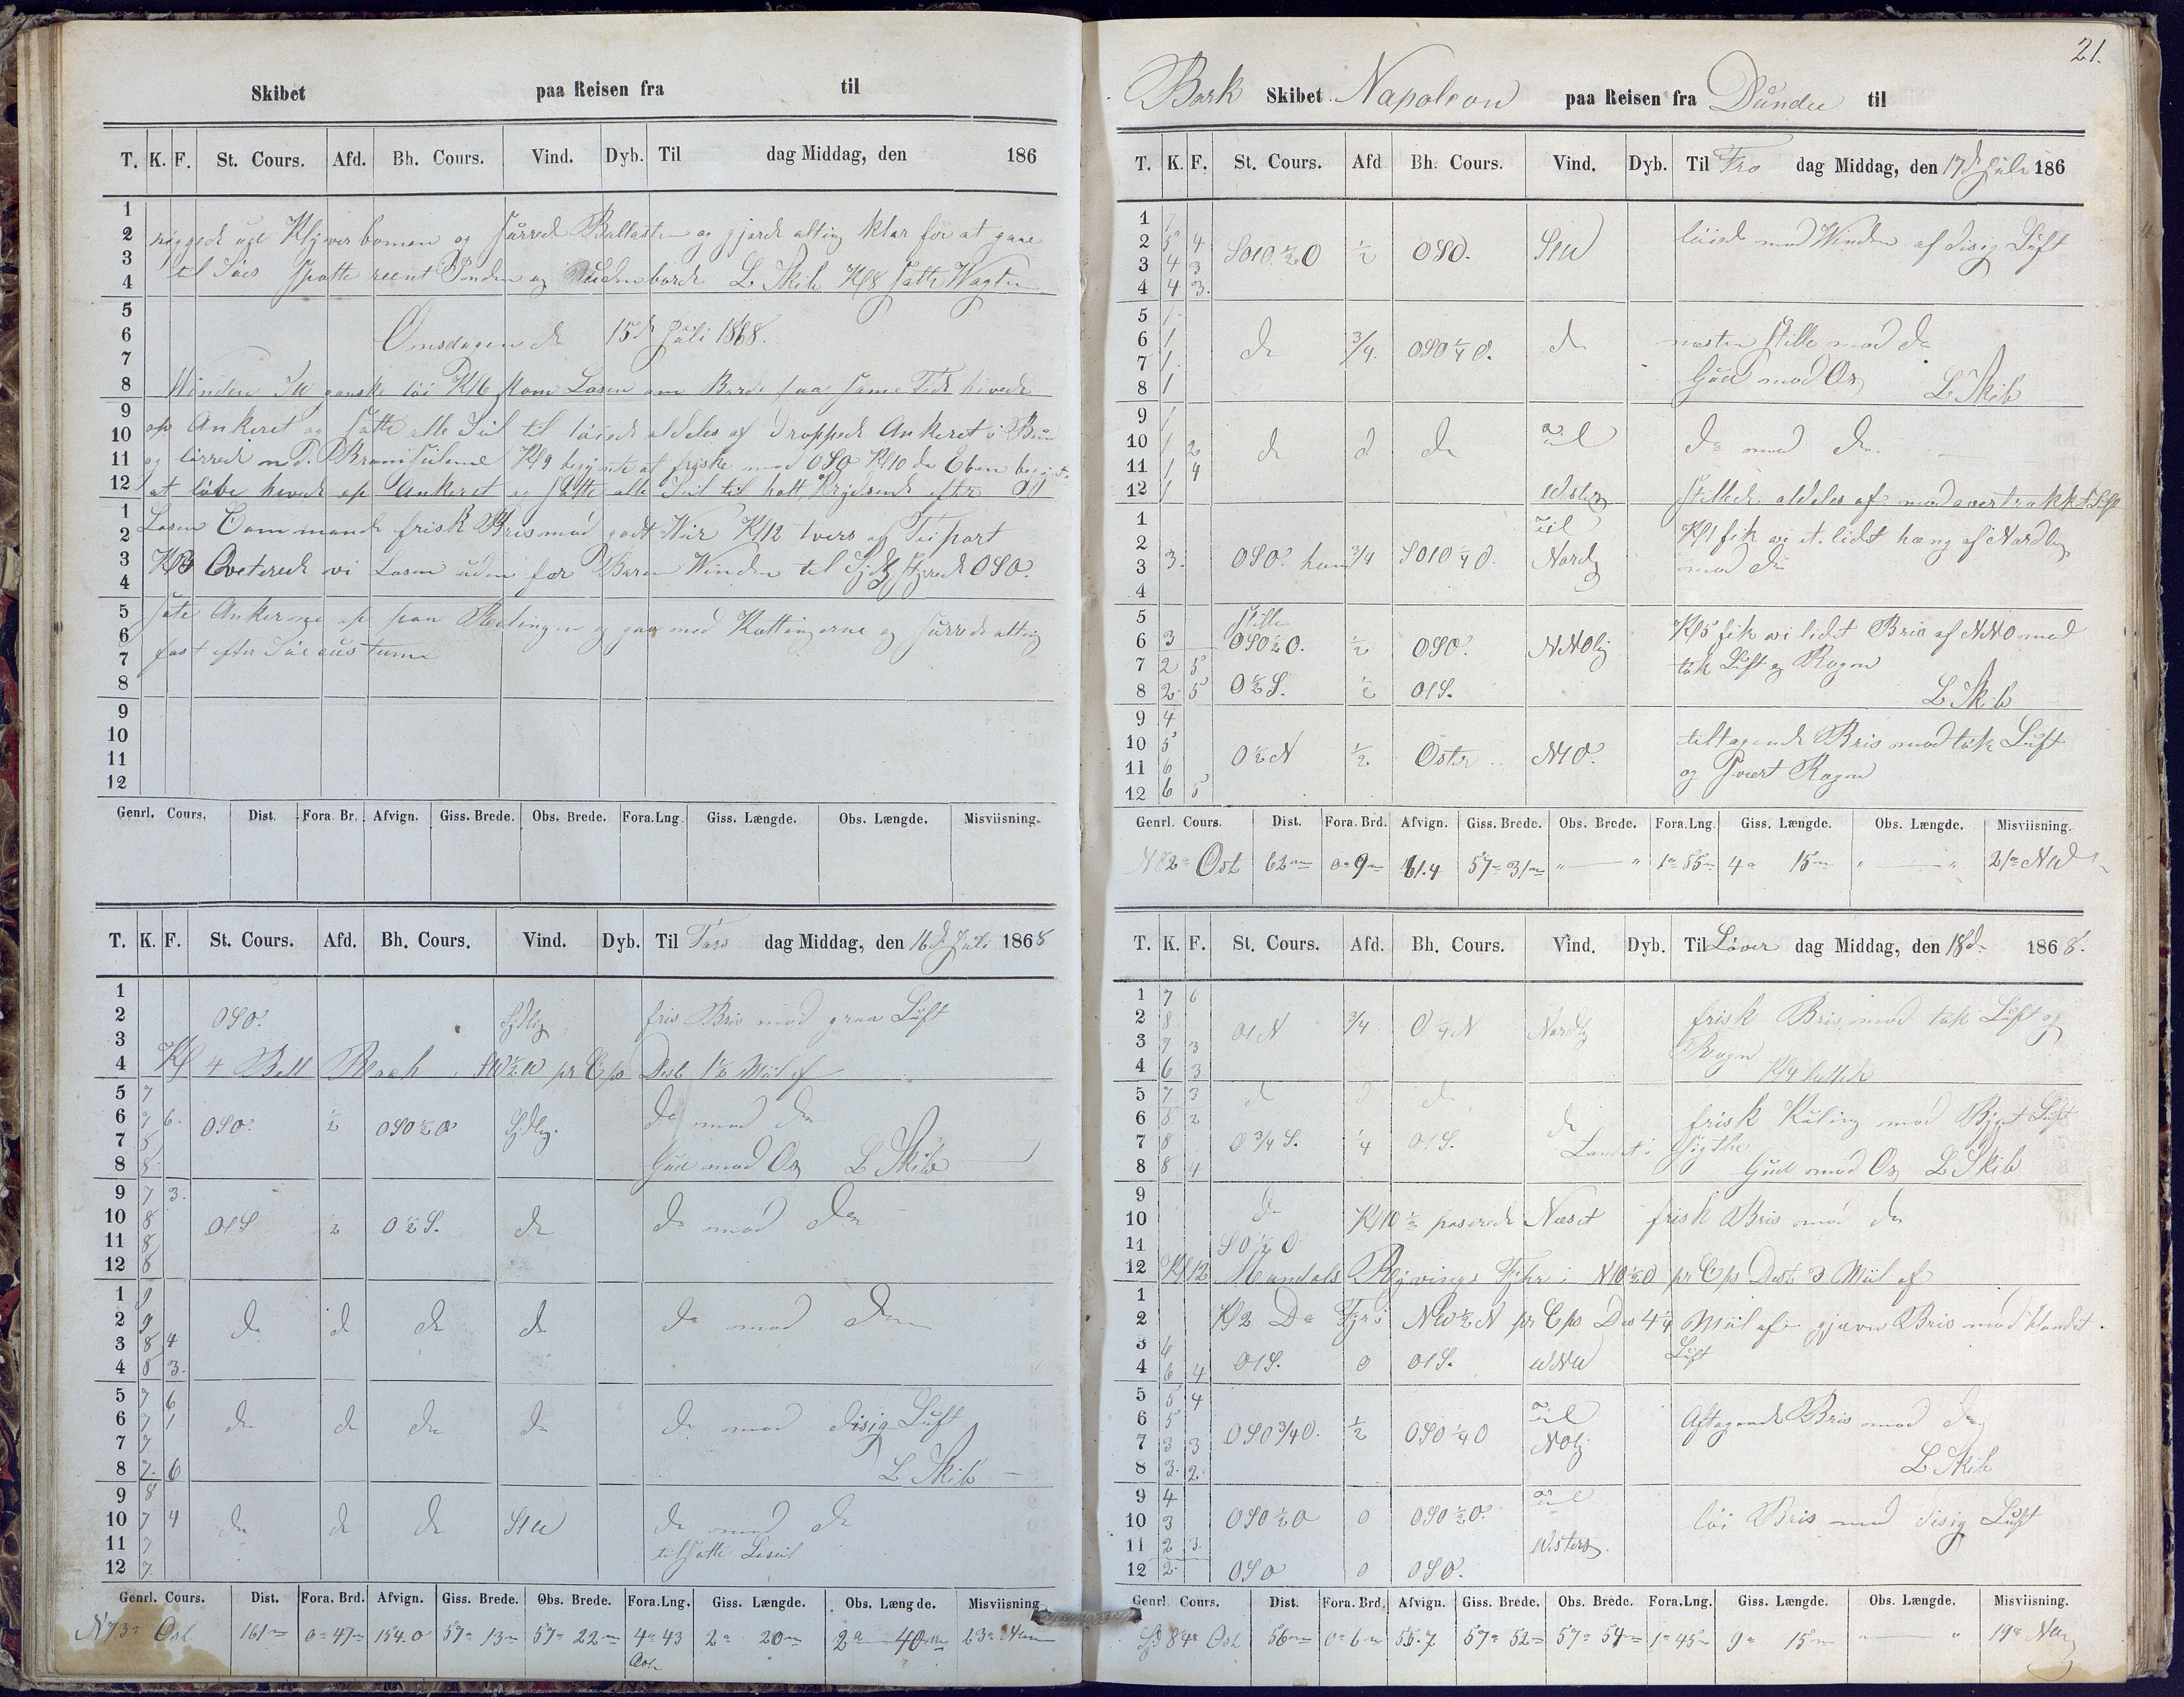 Skibet paa Reisen fra til
T. K. F. St. Cours. Afd. Bh. Cours. Vind. Dyb. Til dag Middag, den 186
1
2 riggede ut Klyverbomen og surrede Ballasten og gjorde alting klar for at gaae
3
4 til Søes satte reent inden og uden borde L Skib Kl 8 satte Wagten
5
6 Onsdagen d 15d Juli 1868.
7
8 Winden SW ganske løi Kl 6 kom Losen om Borde paa samme Tid hivede
9
10 op Ankeret og satte alle Seil til løiede aldeles af droppede Ankeret i Bund
11 og Bramseilene Kl 9 begynte at friske med OSO Kl 10 da Eben begynte
12 at løbe hivede op Ankeret og satte alle Seil til halt Krydsende efter
1
2 Losen Commando frisk Bris med godt Veir Kl 12 tvers af
3 Kl qviterede vi Losen uden for Baren Winden til styrede OSO.
4
5 satte Ankerne op paa Relingen og med Kettingerne og surrede alting
6
7 fast efter Søe
8
9
10
11
12
Genrl. Cours. Dist. Fora. Br. Afvign. Giss. Brede. Obs. Brede. Fora.Lng. Giss. Længde. Obs. Længde. Misviisning.
T. K. F. St. Cours. Afd. Bh. Cours. Vind. Dyb. Til Tors dag Middag, den 16d Juli 1868
1
2 OSO. Sydlig fris Bris med graa Luft
3
4 Kl 4 Bell Rock i SW½W pr Cps Dist 1½ Miil af
5 7
6 7 6. OSO. ½ OSO½O Sydlig. do med do
7 8
8 8 Gud med Os L Skib
9 7 3.
10 8 OtS ½ O½S. do do med do
11 8
12 8
1 9
2 9 do do do do do med do
3 8 4
4 8 3.
5 7 6
6 7 1 do do do do do med disig Luft
7 7
8 7. 6 L Skib
9 8
10 7 4 do do do StW do med do
11 7 tilsatte Leseil
12 7
Genrl. Cours. Dist. Fora. Brd. Afvign. Giss. Brede. Obs. Brede. Fora.Lng. Giss. Længde. Obs. Længde. Misviisning
N 73° Ost 161m 0° 47m 154.0 57° 13m 57° 22m 4° 43 Ost 2° 20m 2° 40m 23° NW
21.
Bark Skibet Napoleon paa Reisen fra Dundee til
T. K. F. St. Cours. Afd Bh. Cours. Vind. Dyb. Til Fre dag Middag, den 17d Juli 186
1
2 5 4 SOtO½O ½ OSO. StW løiede med Winden af disig Luft
3 4 3
4 4 3.
5 1
6 1 do ¾. OSO¼O. do næsten stille med do
7 1
8 1 Gud med Os L Skib
9 1
10 1 2 do do do do med do
11 1 4
12 1 Westlig stillede aldeles af med overtrakket Luft
1
2 3. OSO. ¾ SOtO¼O. Nordlig Kl 1 fik vi et lidet hæng af Nordlig
3 med do
4
5 stille
6 3 OSO½O. ½ OSO. NNOlig Kl 5 fik vi lidt Bris af NNO med
7 2 5 tyk Luft og Rægn
8 2 5 O½S. ½ OtS. L Skib
9 4
10 5 O½N ½ Oster NtO. tiltagende Bris med tyk Luft
11 6 og svært Rægn
12 6 5
Genrl. Cours. Dist. Fora. Brd. Afvign. Giss. Brede. Obs. Brede. Fora.Lng. Giss. Længde. Obs. Længde. Misviisning.
N 82° Ost 62m 0° 9m 61.4 57° 31m " — " 1° 55m 4° 15m " — " 21° NW
T. K. F. St. Cours. Afd. Bh. Cours. Vind. Dyb. Til Løver dag Middag, den 18d 1868.
1 7 6
2 8 OtN ¾ O¼N Nordlig frisk Bris med tyk Luft og
3 7 3 Rægn
4 6 3 Kl 4 lettede
5 7 3 do do do
6 8 2 do frisk Kuling med Byget Luft
7 8 O¾S. ¼ OtS. Landet i Sigte
8 8 4 Gud med Os L Skib
9
10 do Kl 10½ passerede Næset frisk Bris med do
11 SO½O
12 Kl 12 Mandals Ryvings Fyhr i NtO½O pr Cps Dist 3 Miil af
1
2 Kl 2 Do Fyr i NW½N pr Cps Dis 4¼ Miil af gjævn Bris med
3 6 Luft
4 6 4 OtS. 0 OtS. WNW
5 5 4
6 5 OSO¾O. ½ OSO¼O NOlig Aftagende Bris med do
7 3 3
8 3. 2. L Skib
9 4
10 3 OSO½O 0 OSO½O. løi Bris med disig Luft
11 2 3. Westers
12 2 OSO 0 OSO.
Genrl. Cours. Dist. Fora. Brd. Afvign. Giss. Brede. Obs. Brede. Fora.Lng. Giss. Længde. Obs. Længde. Misviisning.
S 84° Ost 56m 0° 6m 55.7 57° 52m 57° 54m 1° 45m 9° 15m " " 19° NW